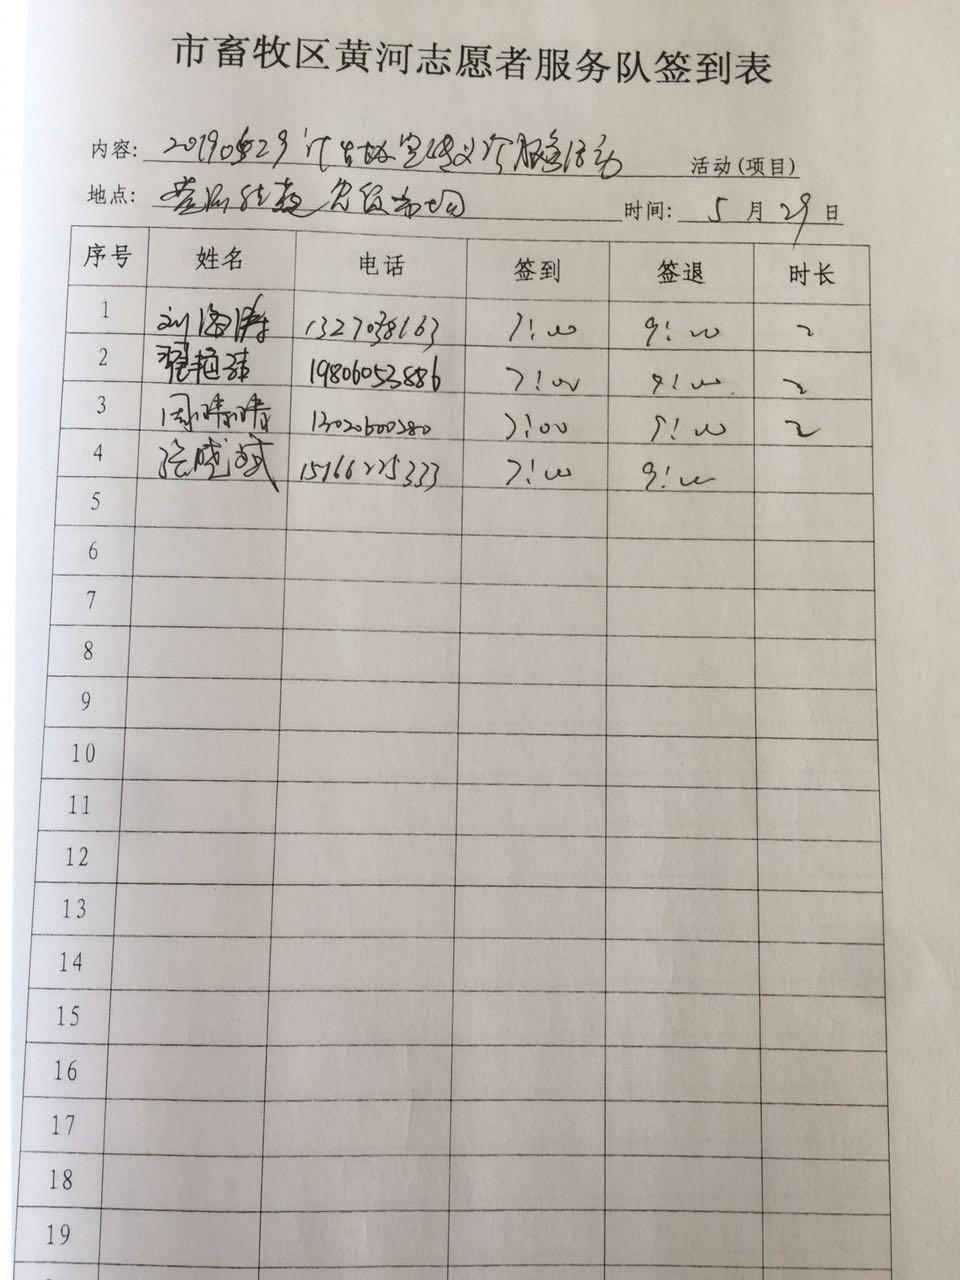 市畜牧区黄河志愿者服务队签到表
内容: 20190529计生协宣传义诊服务活动 活动(项目)
地点: 时间: 5 月 29 日
序号 姓名 电话 签到 签退 时长
1 刘海涛 1327038163 7:00 9:00 2
2 翟艳 19806053886 7:00 9:00 2
3 周晴晴 13020600280 7:00 9:00 2
4 张盛斌 15966225333 7:00 9:00
5
6
7
8
9
10
11
12
13
14
15
16
17
18
19